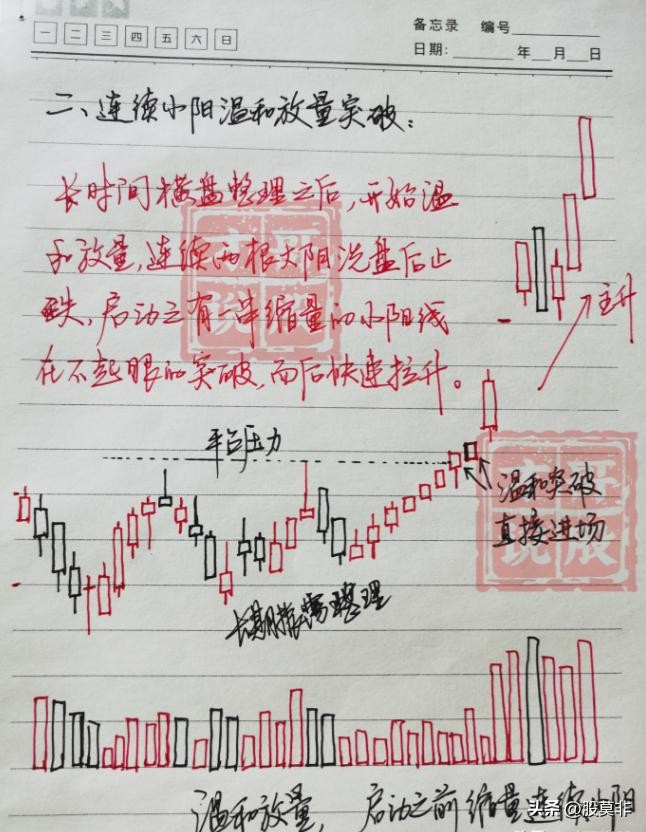 一 二 三 四 五 六 日
备忘录 编号
日期: 年 月 日
二、连续小阳温和放量突破:
长时间横盘整理之后,开始温
和放量,连续两根大阴洗盘后止
跌,启动之有一串缩量的小阳线
在不起眼的突破,而后快速拉升。
主升
平台压力
温和突破
直接进场
长期震荡整理
温和放量, 启动之前缩量连续小阳
头条 @股莫非